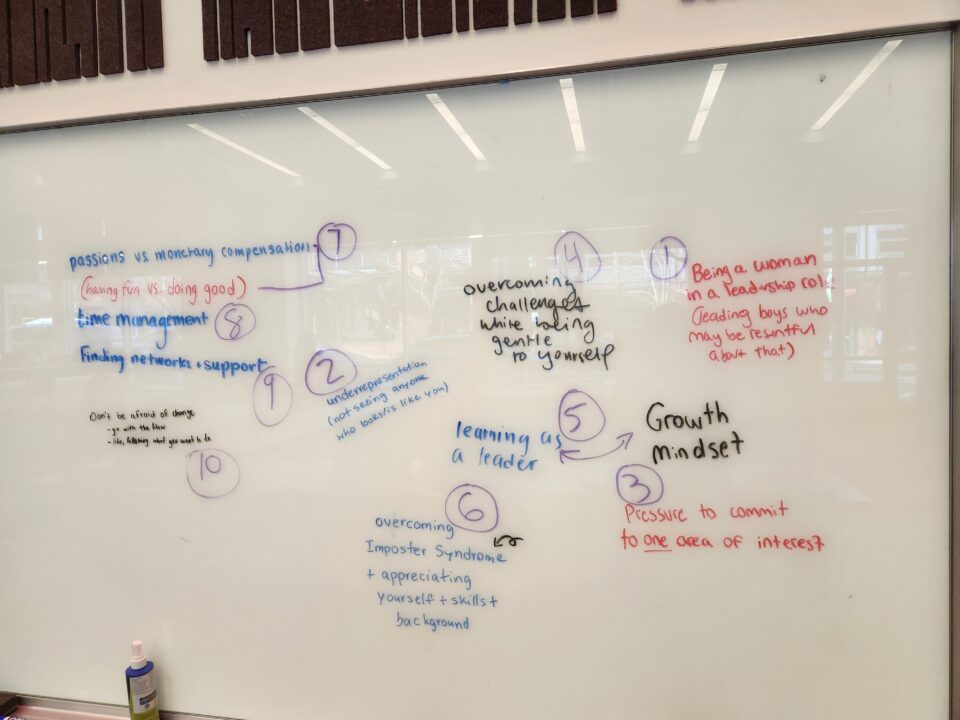 7
passions vs. monetary compensation
(having fun vs. doing good)
time management
8
Finding networks + support
9
Don't be afraid of change
- go with the flow
- life, following what you want to do
10
2
underrepresentation
(not seeing anyone
who looks/is like you)
4
overcoming
challenges
while being
gentle
to yourself
1
Being a woman
in a leadership role
(leading boys who
may be resentful
about that)
5
learning as
a leader
Growth
mindset
3
Pressure to commit
to one area of interest
6
overcoming
Imposter Syndrome
+ appreciating
yourself + skills +
background